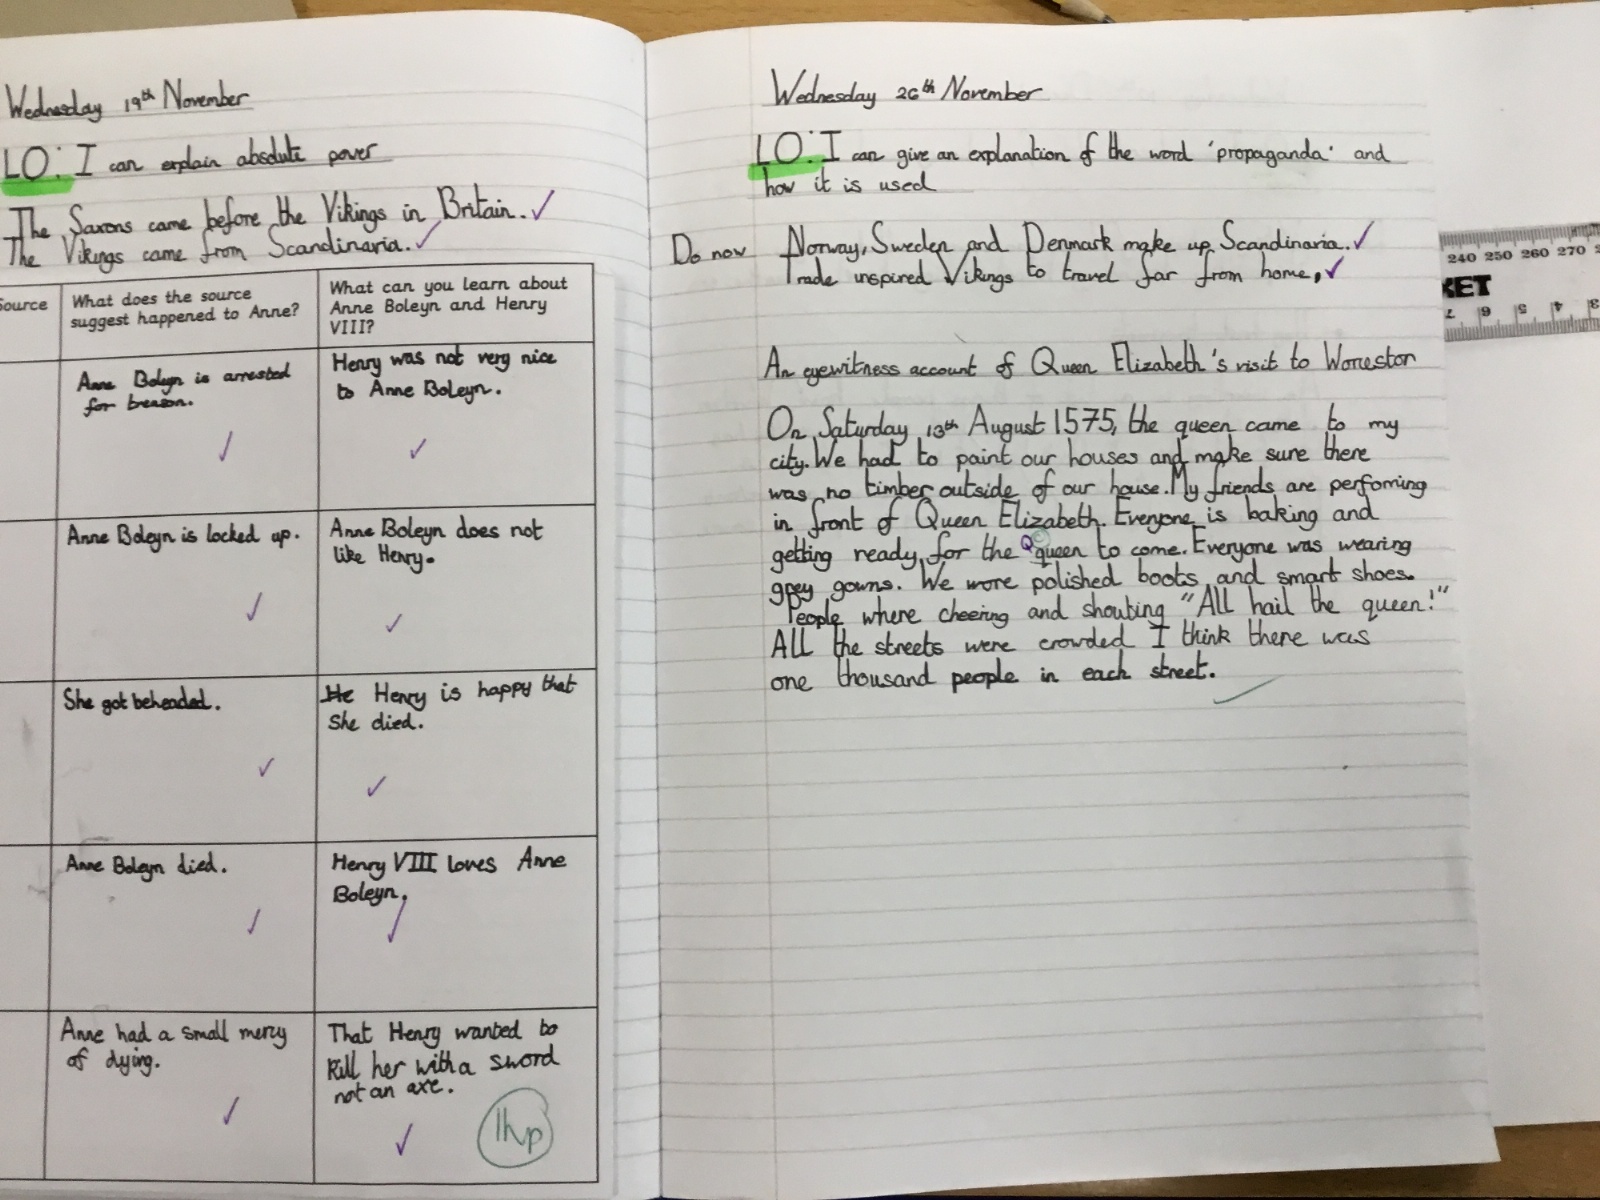 Wednesday 19th November
LO: I can explain absolute power
The Saxons came before the Vikings in Britain.
The Vikings came from Scandinaria.
Source
What does the source
suggest happened to Anne?
What can you learn about
Anne Boleyn and Henry
VIII?
Anne Boleyn is arrested
for treason.
Henry was not very nice
to Anne Boleyn.
Anne Boleyn is locked up.
Anne Boleyn does not
like Henry.
She got beheaded.
He Henry is happy that
she died.
Anne Boleyn died.
Henry VIII loves Anne
Boleyn.
Anne had a small mercy
of dying.
That Henry wanted to
kill her with a sword
not an axe.
1hp
Wednesday 26th November
LO: I can give an explanation of the word 'propaganda' and
how it is used
Do now
Norway, Sweden and Denmark make up Scandinaria.
Trade inspired Vikings to travel far from home.
An eyewitness account of Queen Elizabeth's visit to Worcestor
On Saturday 13th August 1575, the queen came to my
city. We had to paint our houses and make sure there
was no timber outside of our house. My friends are perfoming
in front of Queen Elizabeth. Everyone is baking and
getting ready for the Qqueen to come. Everyone was wearing
grey gowns. We wore polished boots and smart shoes.
People where cheering and shouting "All hail the queen!"
All the streets were crowded I think there was
one thousand people in each street.
240 250 260 270
KET
7 6 5 4 3